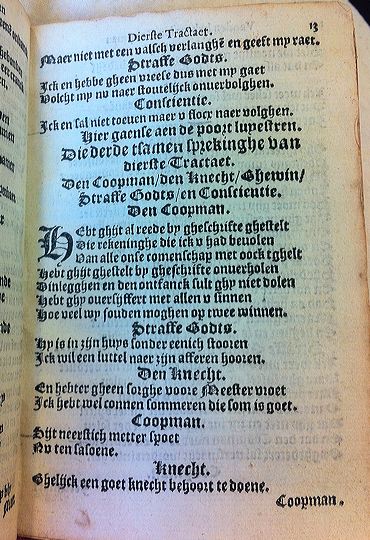 Dierste Tractaet. 13
Maer niet met een valsch verlanghē en geeft my raet.
Straffe Godts.
Ick en hebbe gheen vreese dus met my gaet
Volcht my nv naer stoutelijck onuerbolghen.
Conscientie.
Ick en sal niet toeuen maer v flocx naer volghen.
Hier gaense aen de poort lupestren.
Die derde tsamen sprekinghe van
dierste Tractaet.
Den Coopman/den Knecht/Ghewin/
Straffe Godts/en Conscientie.
Den Coopman.
Hebt ghijt al reede by gheschrifte ghestelt
Die rekeninghe die ick v had beuolen
Van alle onse comenschap met oock tghelt
Hebt ghijt ghestelt by gheschrifte onuerholen
Dinlegghen en den ontfanck sult ghy niet dolen
Hebt ghy ouersijffert met allen v sinnen
Hoe veel wy souden moghen op twee winnen.
Straffe Godts.
Hy is in zijn huys sonder eenich stooren
Ick wil een luttel naer zijn afferen hooren.
Den Knecht.
En hebter gheen sorghe voore Meester vroet
Ick hebt wel connen sommeren die som is goet.
Coopman.
Sijt neerstich metter spoet
Nv ten saisoene.
Knecht.
Ghelijck een goet knecht behoort te doene.
Coopman.